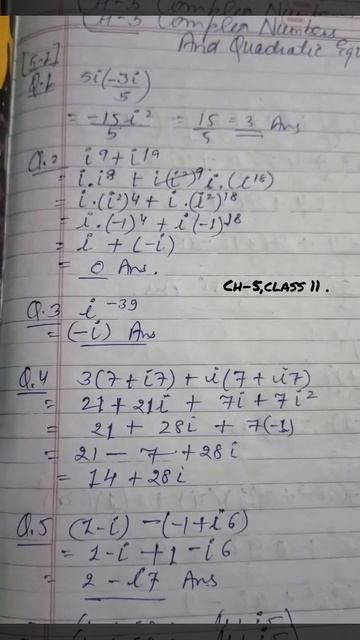 CH-5 Complex Numbers
And Quadratic Equ
[5.1]
Q.1 5i(-3i/5)
= -15i²/5 = 15/5 = 3 Ans
Q.2 i⁹ + i¹⁹
= i.i⁸ + i.(i¹⁸)
= i.(i²)4 + i.(i²)18
= i.(-1)4 + i(-1)18
= i + (-i)
= 0 Ans.
CH-5,CLASS 11.
Q.3 i⁻³⁹
= (-i) Ans
Q.4 3(7+i7) + i(7+i7)
= 21 + 21i + 7i + 7i²
= 21 + 28i + 7(-1)
= 21 - 7 + 28i
= 14 + 28i
Q.5 (1-i) - (-1+i6)
= 1-i + 1 - i6
= 2 - i7 Ans